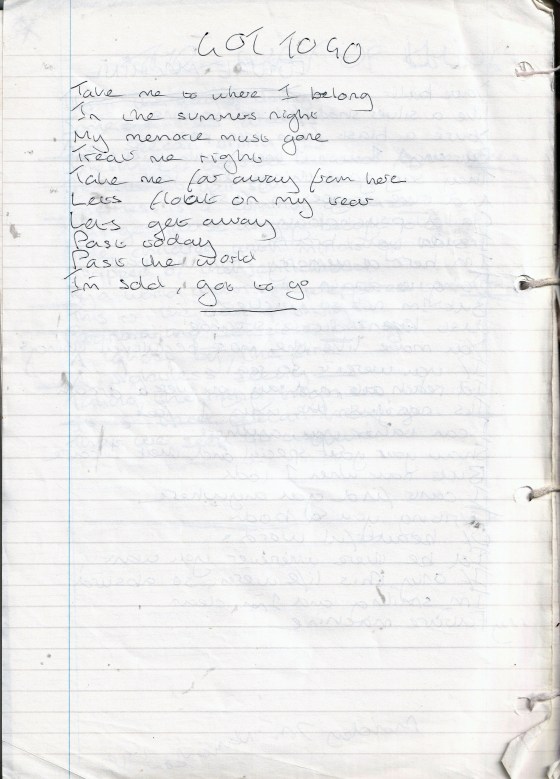 GOT TO GO
Take me to where I belong
In the summers night
My memorie must gone
Treat me right
Take me far away from here
Lets float on my tear
Lets get away
Past today
Past the world
Im sold, got to go